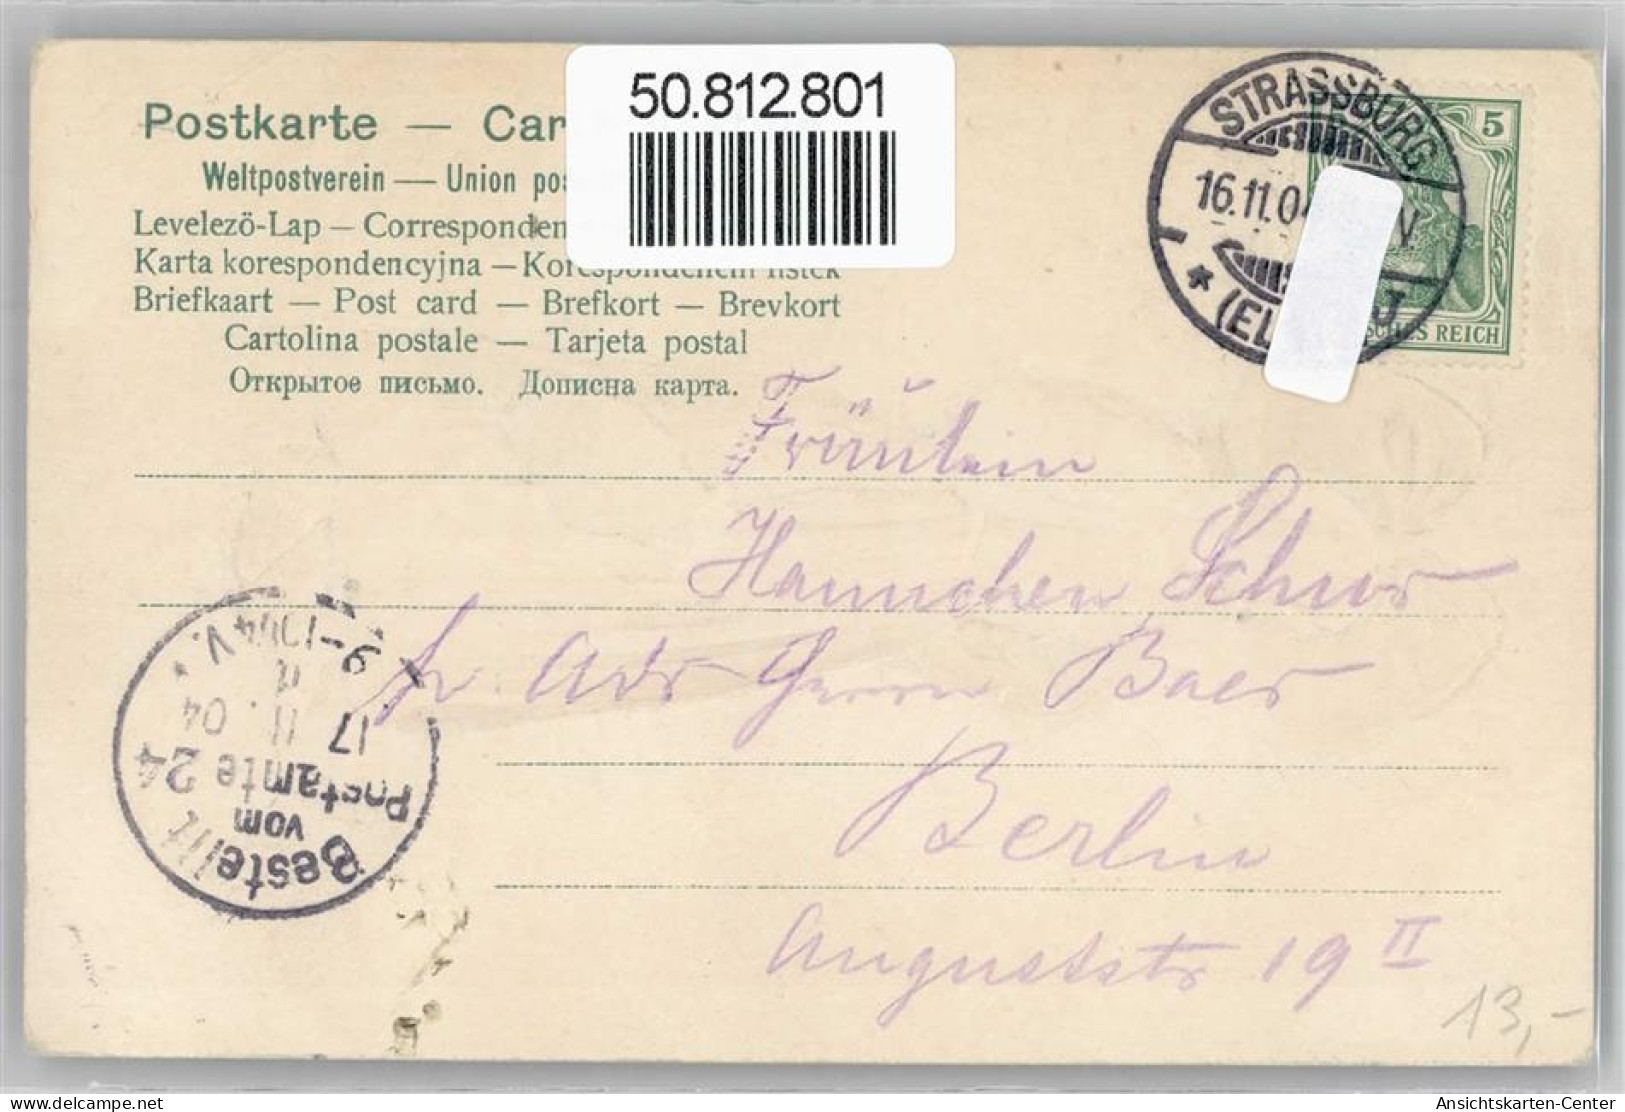 50.812.801
Postkarte — Car
Weltpostverein — Union pos
Levelező-Lap — Corresponden
Karta korespondencyjna — Korespondenčni listek
Briefkaart — Post card — Brefkort — Brevkort
Cartolina postale — Tarjeta postal
Открытое письмо. Дописна карта.
STRASSBURG
16.11.04 V
* (EL J
5
SCHES REICH
Fräulein
Hannchen Schur
pr Adr Herrn Baer
Berlin
Auguststr 19 II
13,-
Bestellt
vom
Postamte 24
17 11. 04
9-10¼ V.
delcampe.net
Ansichtskarten-Center